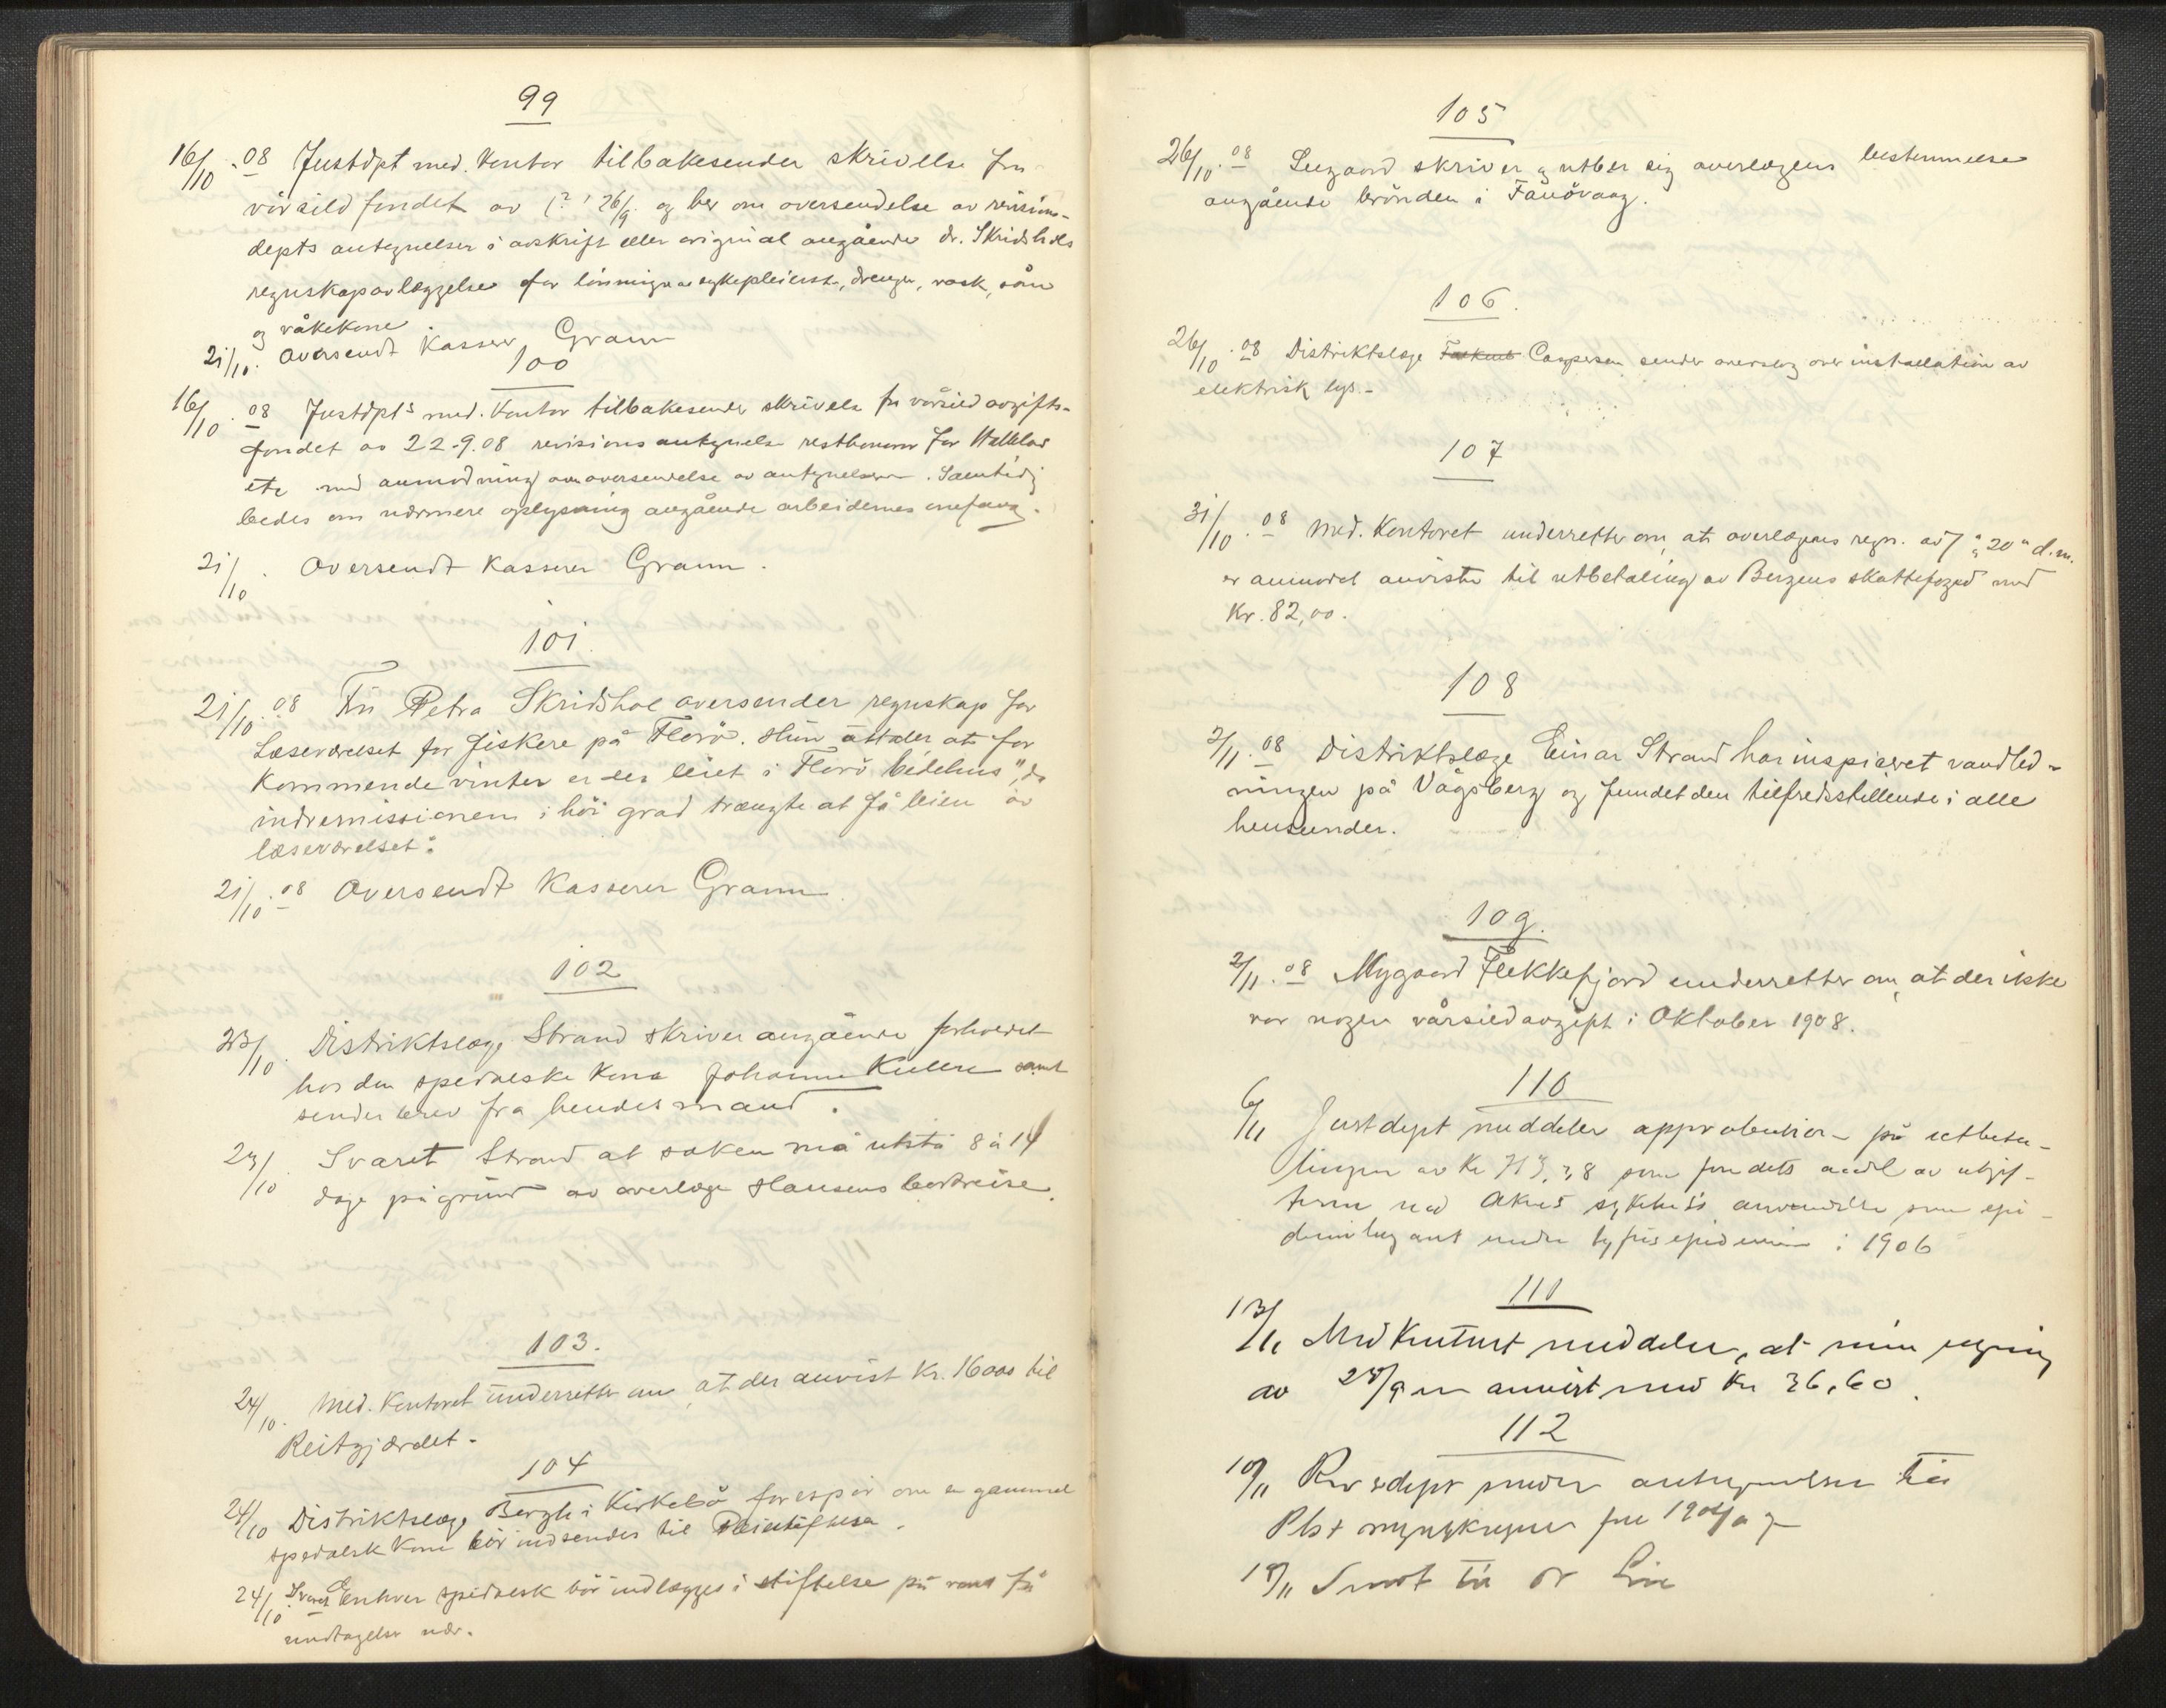 99
16/10 . 08 Justdpt med. Kontor tilbakesender skrivelse fra
vårsildfondet av (?) 26/9. og ber om oversendelse av revisions-
depts antegnelser i avskrift eller original angående dr. Skridshols
regnskapsavlæggelse for lönninger av sykepleierske, drenger, vask, sån
og våkekone.
21/10. Oversendt Kasserer Gram
100
16/10 . 08 Justdpts med. Kontor tilbakesender skrivelse fra vårsildavgifts-
fondet av 22-9.08 revisionsantegnelse resthonorar for
etc med anmodning om oversendelse av antegnelserne. Samtidig
bedes om nærmere oplysning angående arbeidernes omfang.
21/10 . Oversendt Kasserer Gram.
101.
21/10. 08 Frk Petra Skridshol oversender regnskap for
Læseværelset for fiskere på Florö. Hun uttaler at for
kommende vinter er der leiet i Florö bedehus", da
indremissionen i höi grad trængte at få leien av
læseværelset".
21/10. 08 Oversendt Kasserer Gram.
102
23/10. Distriktslæge Strand skriver angående forholdet
hos den spedalske kone Johanne samt
sender brev fra hendes mand.
23/10. Svaret Strand at saken må utstå 8 à 14
dage på grund av overlæge Hansens bortreise.
103.
24/10. Med. Kontoret underretter om, at der anvist kr. 16000 til
Reitgjærdet.
104
24/10 Distriktslæge Bergh i Kirkebö forespör om en gammel
spedalsk kone bör indsendes til Pleiestiftelsen.
24/10. Svaret Enhver spedalsk bör indlægges i stiftelse på rent få
undtagelser nær.
105
26/10. 08 Leegaard skriver og utber sig overlægens bestemmelse
angående brönden i Fanövaag.
106.
26/10 . 08 Distriktslæge Caspersen sender overslag over installation av
elektrisk lys.-
107
31/10. 08 Med. Kontoret underretter om, at overlægens regn. av 7 & 20 d.m.
er anmodet anvist til utbetaling av Bergens skattefoged med
Kr. 82,00.
108
2/11. 08 Distriktslæge Einar Strand har inspiceret vandled-
ningen på Vågsberg og fundet den tilfredsstillende i alle
henseender.
109.
2/11. 08 Nygaard Flekkefjord underretter om, at der ikke
var nogen vårsildavgift i Oktober 1908.
110
6/11 Justdept meddeler approbation på utbeta-
lingen av Kr som fondets andel av utgif-
terne ved sykehus anvendte som epi-
demilazaret under tyfusepidemien i 1906
111
13/11 Medkontoret meddeler, at min regning
av 28/9 er anvist med Kr 36,60.
112
10/11 Revsdept sender antegnelser til
Plst regnskaper for
18/11 Sendt til Dr Lie